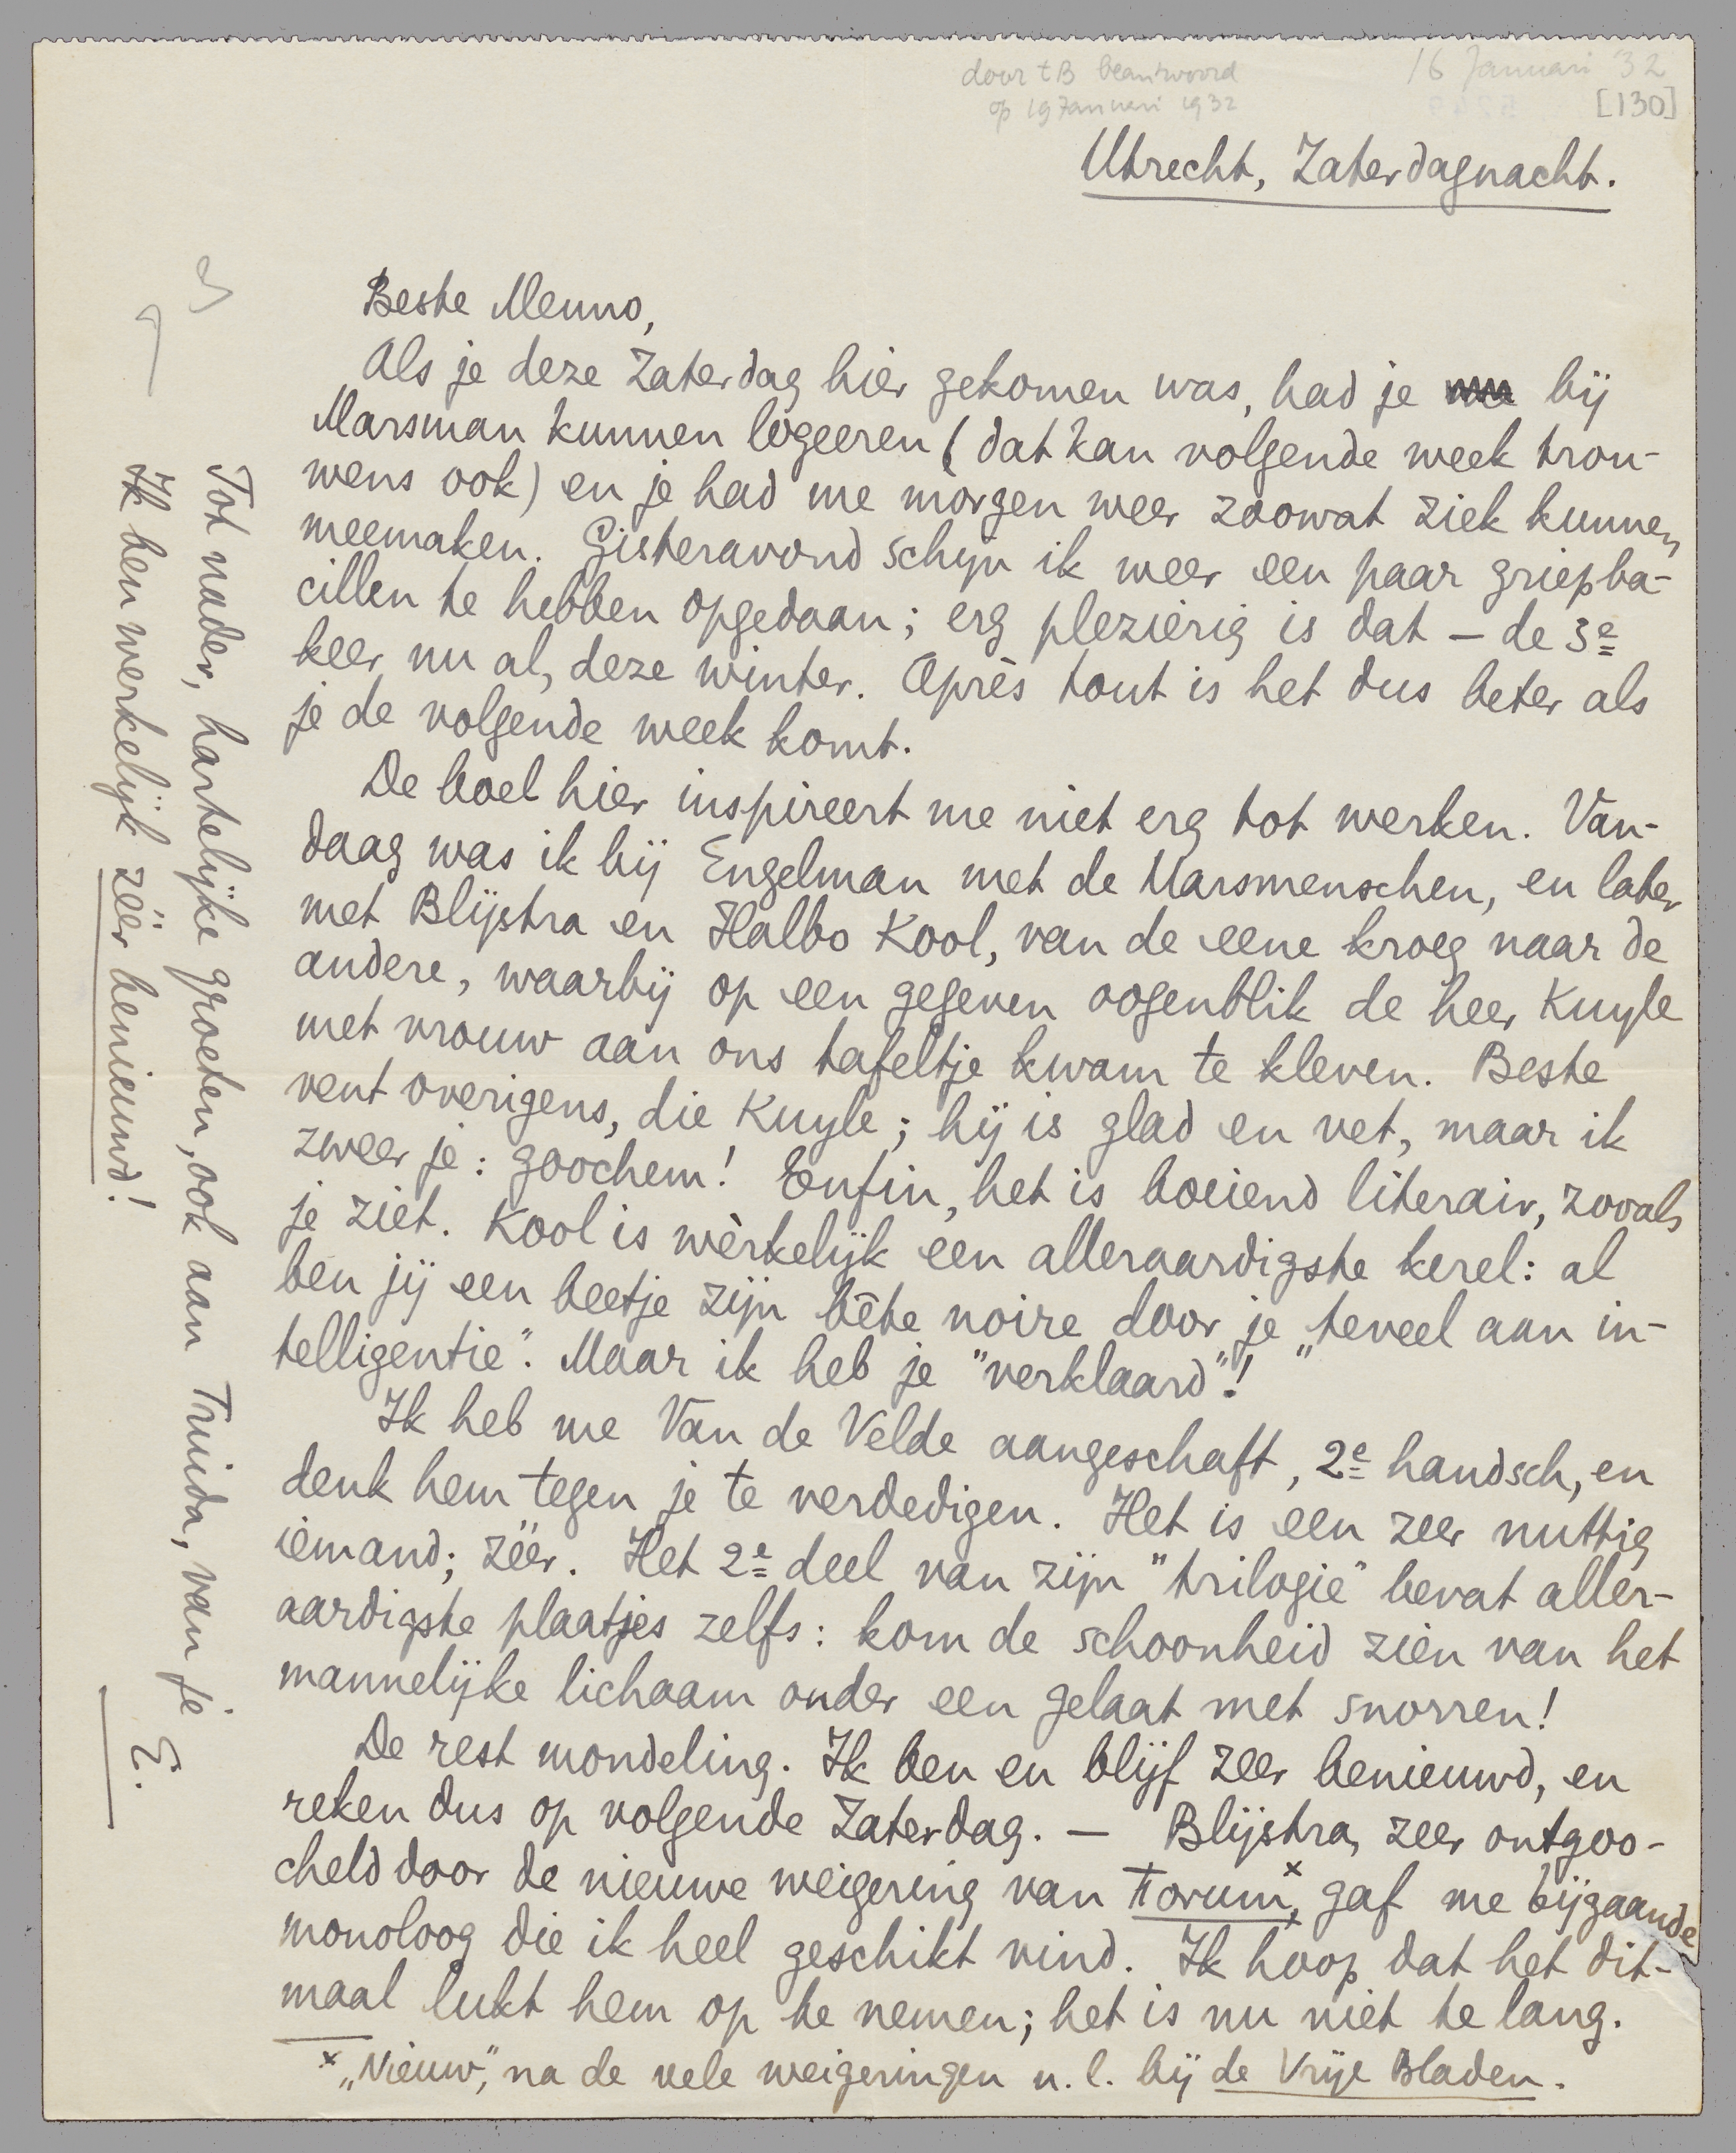 door tB beantwoord
op 19 Januari 1932
16 Januari '32
[130]
Utrecht, Zaterdagnacht.
Beste Menno,
Als je deze Zaterdag hier gekomen was, had je bij
Marsman kunnen logeeren (dat kan volgende week trou-
wens ook) en je had me morgen weer zoowat ziek kunnen
meemaken. Gisteravond schijn ik weer een paar griepba-
cillen te hebben opgedaan; erg plezierig is dat – de 3e
keer nu al, deze winter. Après tout is het dus beter als
je de volgende week komt.
De boel hier inspireert me niet erg tot werken. Van-
daag was ik bij Engelman met de Marsmenschen, en later
met Blijstra en Halbo Kool, van de eene kroeg naar de
andere, waarbij op een gegeven oogenblik de heer Kuyle
met vrouw aan ons tafeltje kwam te kleven. Beste
vent overigens, die Kuyle; hij is glad en vet, maar ik
zweer je: goochem! Enfin, het is boeiend literair, zooals
je ziet. Kool is wèrkelijk een alleraardigste kerel: al
ben jij een beetje zijn bête noire door je „teveel aan in-
telligentie". Maar ik heb je "verklaard"!
Ik heb me Van de Velde aangeschaft, 2e handsch, en
denk hem tegen je te verdedigen. Het is een zeer nuttig
iemand; zéér. Het 2e deel van zijn "trilogie" bevat aller-
aardigste plaatjes zelfs: kom de schoonheid zien van het
mannelijke lichaam onder een gelaat met snorren!
De rest mondeling. Ik ben en blijf zeer benieuwd, en
reken dus op volgende Zaterdag. — Blijstra, zeer ontgoo-
cheld door de nieuwe weigering van Forum,x gaf me bijgaande
monoloog die ik heel geschikt vind. Ik hoop dat het dit-
maal lukt hem op te nemen; het is nu niet te lang.
x „Nieuw", na de vele weigeringen n.l. bij de Vrije Bladen.
Tot nader, hartelijke groeten, ook aan Truida, van je
E.
Ik ben werkelijk zéér benieuwd!